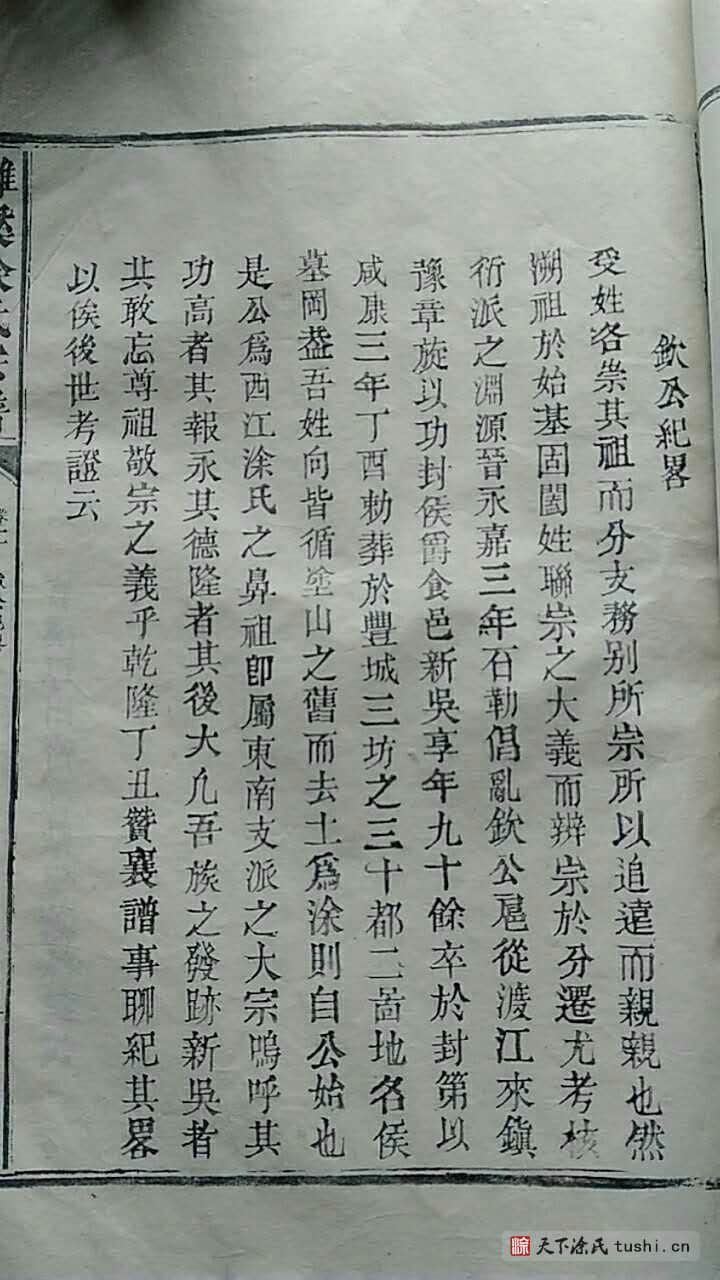 欽公紀畧
受姓各祟其祖而分支務别所宗所以追遠而親親也然
溯祖於始基固闔姓聯宗之大義而辨宗於分遷尤考核
衍派之淵源晉永嘉三年石勒倡亂欽公扈從渡江來鎮
豫章旋以功封侯爵食邑新吳享年九十餘卒於封第以
咸康三年丁酉勅葬於豐城三坊之三十都二啚地名侯
墓岡葢吾姓向皆循塗山之舊而去土爲涂則自公始也
是公爲西江涂氏之鼻祖卽屬東南支派之大宗嗚呼其
功高者其報永其德隆者其後大凡吾族之發跡新吳者
其敢忘尊祖敬宗之義乎乾隆丁丑贊襄譜事聊紀其畧
以俟後世考證云
天下涂氏 tushi.cn